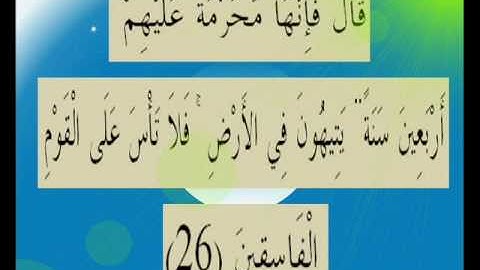 قَالَ فَإِنَّهَا مُحَرَّمَةٌ عَلَيْهِمْ
أَرْبَعِينَ سَنَةً ۛ يَتِيهُونَ فِي الأَرْضِ ۚ فَلاَ تَأْسَ عَلَى الْقَوْمِ
الْفَاسِقِينَ (26)